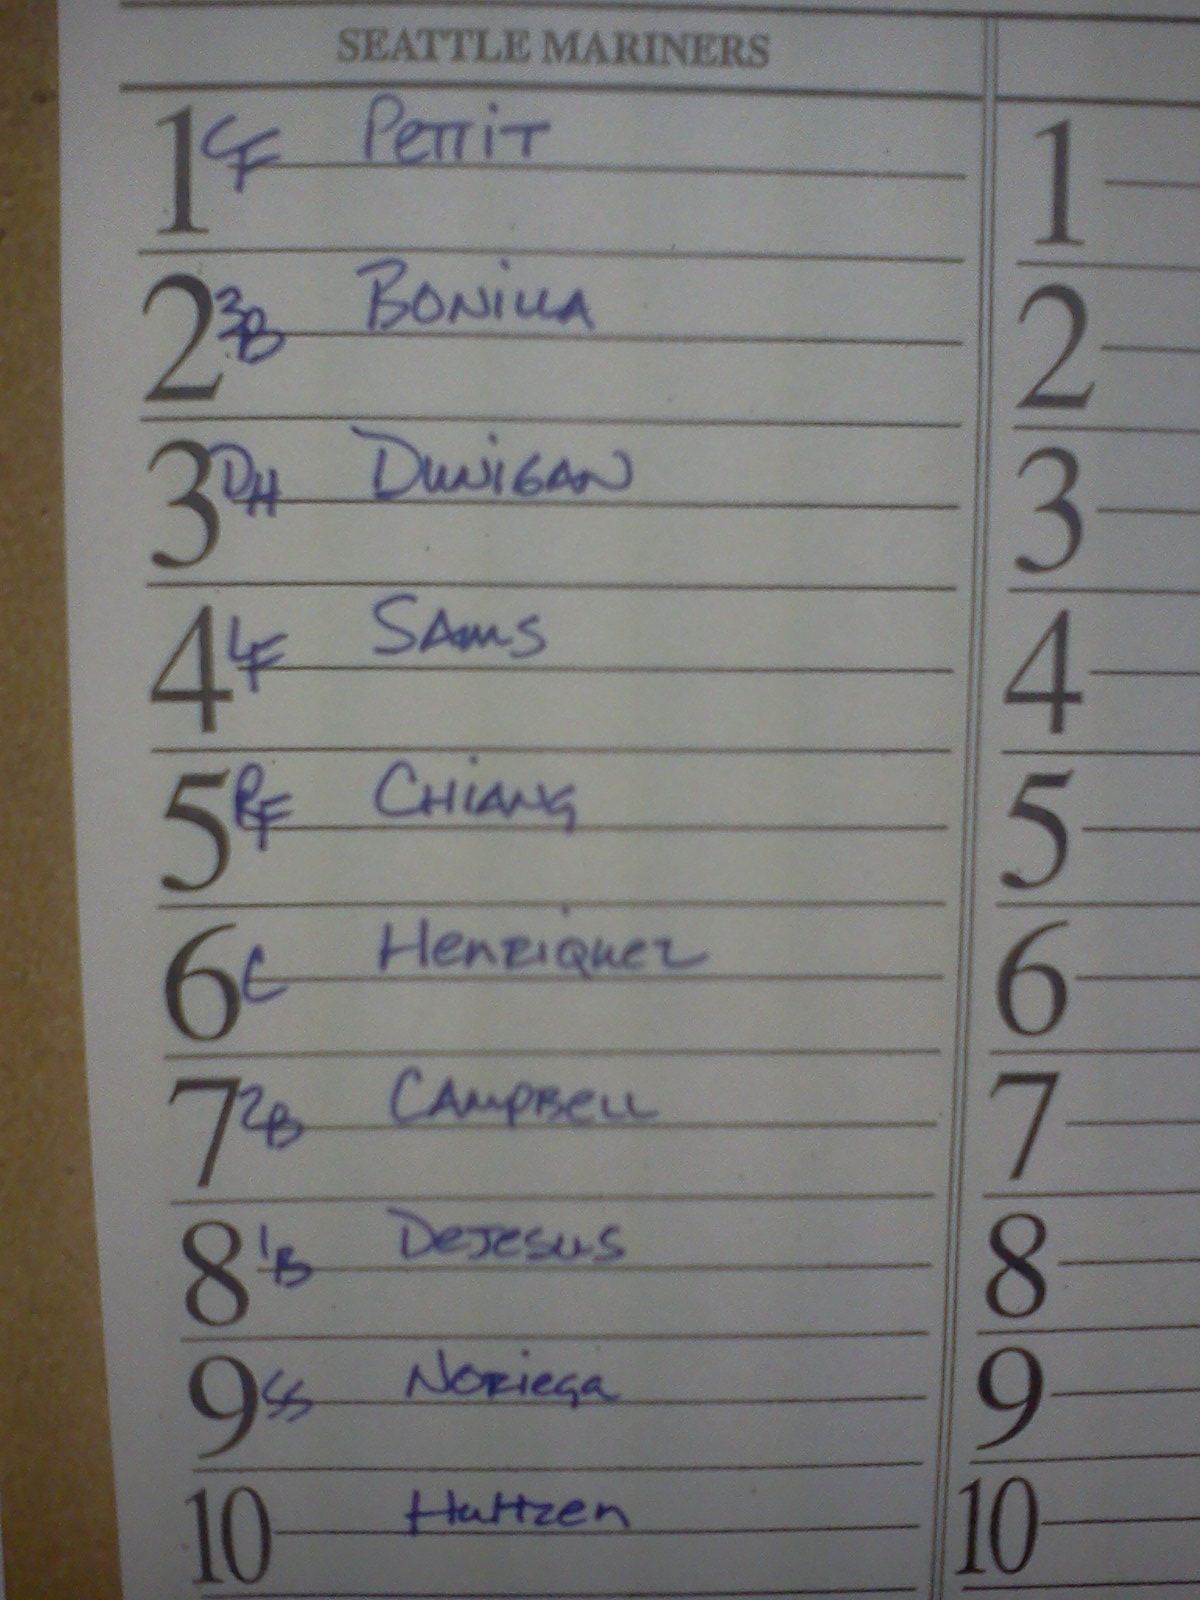 SEATTLE MARINERS
1 CF Pettit 1
2 3B Bonilla 2
3 DH Dunigan 3
4 LF Sams 4
5 RF Chiang 5
6 C Henriquez 6
7 2B Campbell 7
8 1B DeJesus 8
9 SS Noriega 9
10 Hultzen 10